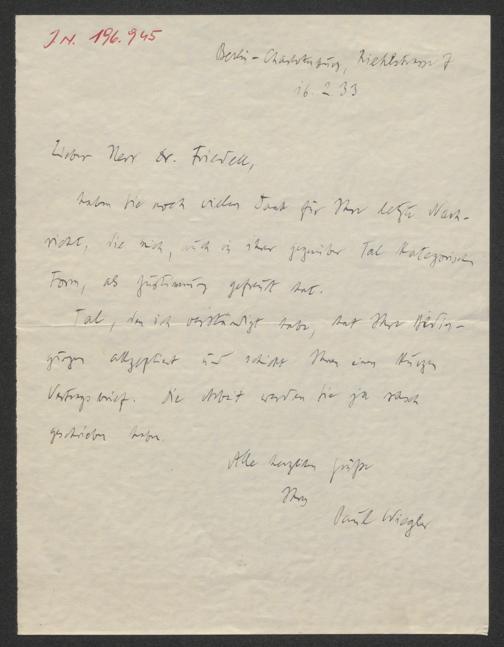 J.N. 196.945
Berlin-Charlottenburg, Riehlstrasse 7
16. 2. 33
Lieber Herr Dr. Friedell,
haben Sie noch vielen Dank für Ihre letzte Nach-
richt, die mich, auch in ihrer gegenüber Tal kategorischen
Form, als Zustimmung gefreut hat.
Tal, den ich verständigt habe, hat Ihre Bedin-
gungen akzeptiert und schickt Ihnen einen kurzen
Vertragsbrief. Die Arbeit werden Sie ja rasch
geschrieben haben.
Alle herzlichen Grüße
Ihres
Paul Wiegler